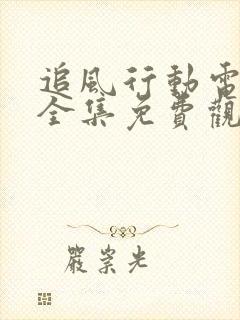 追風行動電
全集免費觀
嚴崇光